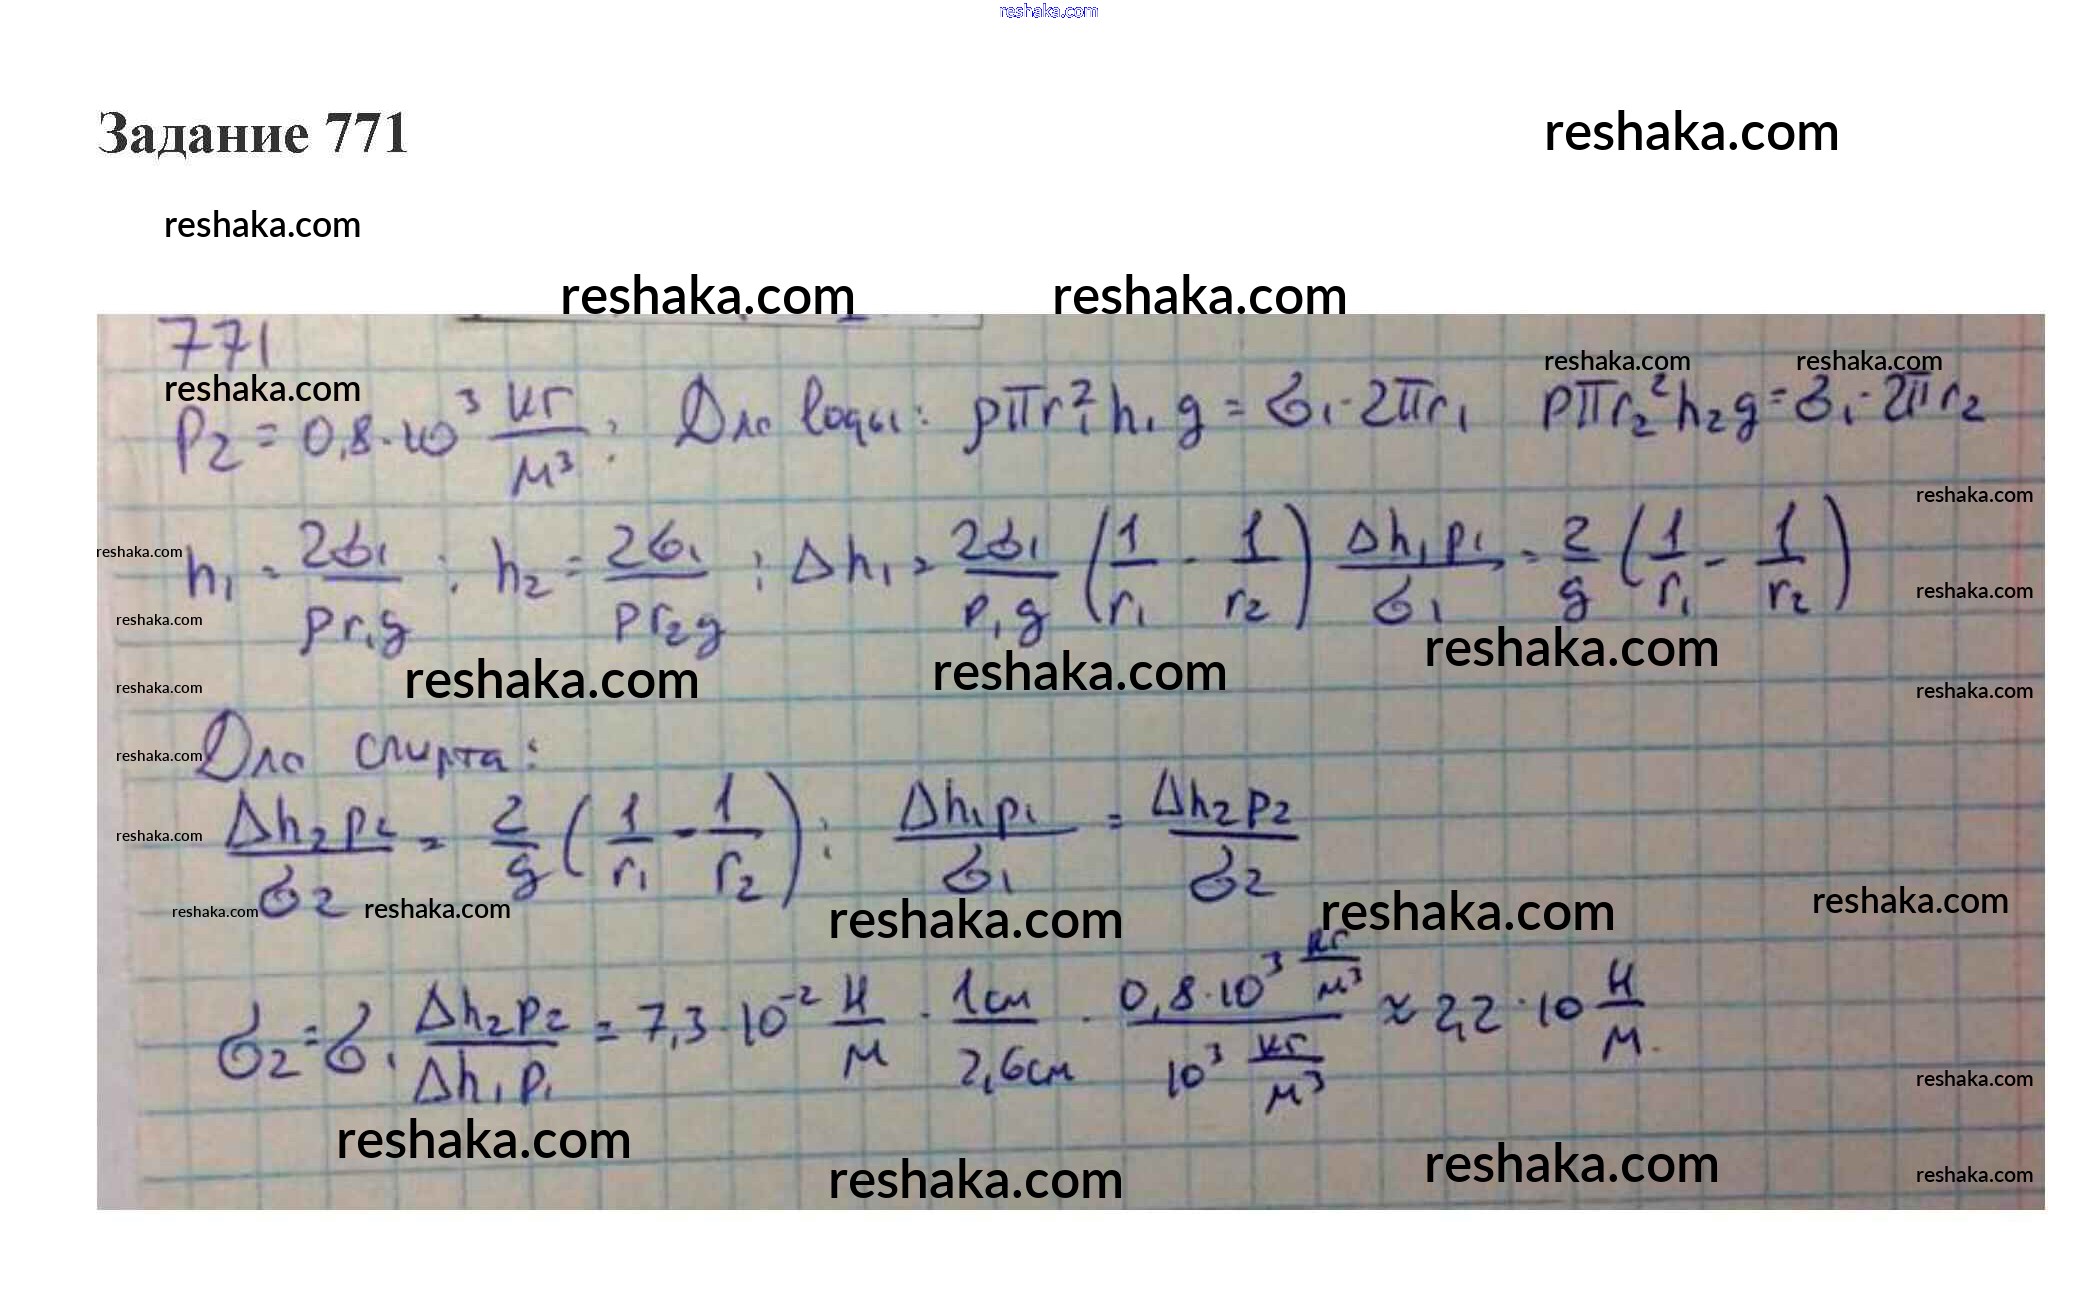 reshaka.com
Задание 771 reshaka.com
reshaka.com
reshaka.com reshaka.com
771
reshaka.com reshaka.com
reshaka.com
ρ2 = 0,8·10³ кг/м³ ; Для воды: ρπr₁²h₁g = σ₁·2πr₁ ρπr₂²h₂g = σ₁·2πr₂
reshaka.com
reshaka.com
h₁ = 2σ₁/ρr₁g ; h₂ = 2σ₁/ρr₂g ; Δh₁ = 2σ₁/ρ₁g (1/r₁ - 1/r₂) Δh₁ρ₁/σ₁ = 2/g (1/r₁ - 1/r₂)
reshaka.com
reshaka.com
reshaka.com reshaka.com reshaka.com
reshaka.com reshaka.com
Для спирта:
reshaka.com
Δh₂ρ₂/σ₂ = 2/g (1/r₁ - 1/r₂) ; Δh₁ρ₁/σ₁ = Δh₂ρ₂/σ₂
reshaka.com
reshaka.com reshaka.com reshaka.com reshaka.com reshaka.com
σ₂ = σ₁ Δh₂ρ₂/Δh₁ρ₁ = 7,3·10⁻² Н/м · 1см/2,6см · 0,8·10³ кг/м³/10³ кг/м³ ≈ 2,2·10 Н/м.
reshaka.com
reshaka.com reshaka.com reshaka.com reshaka.com